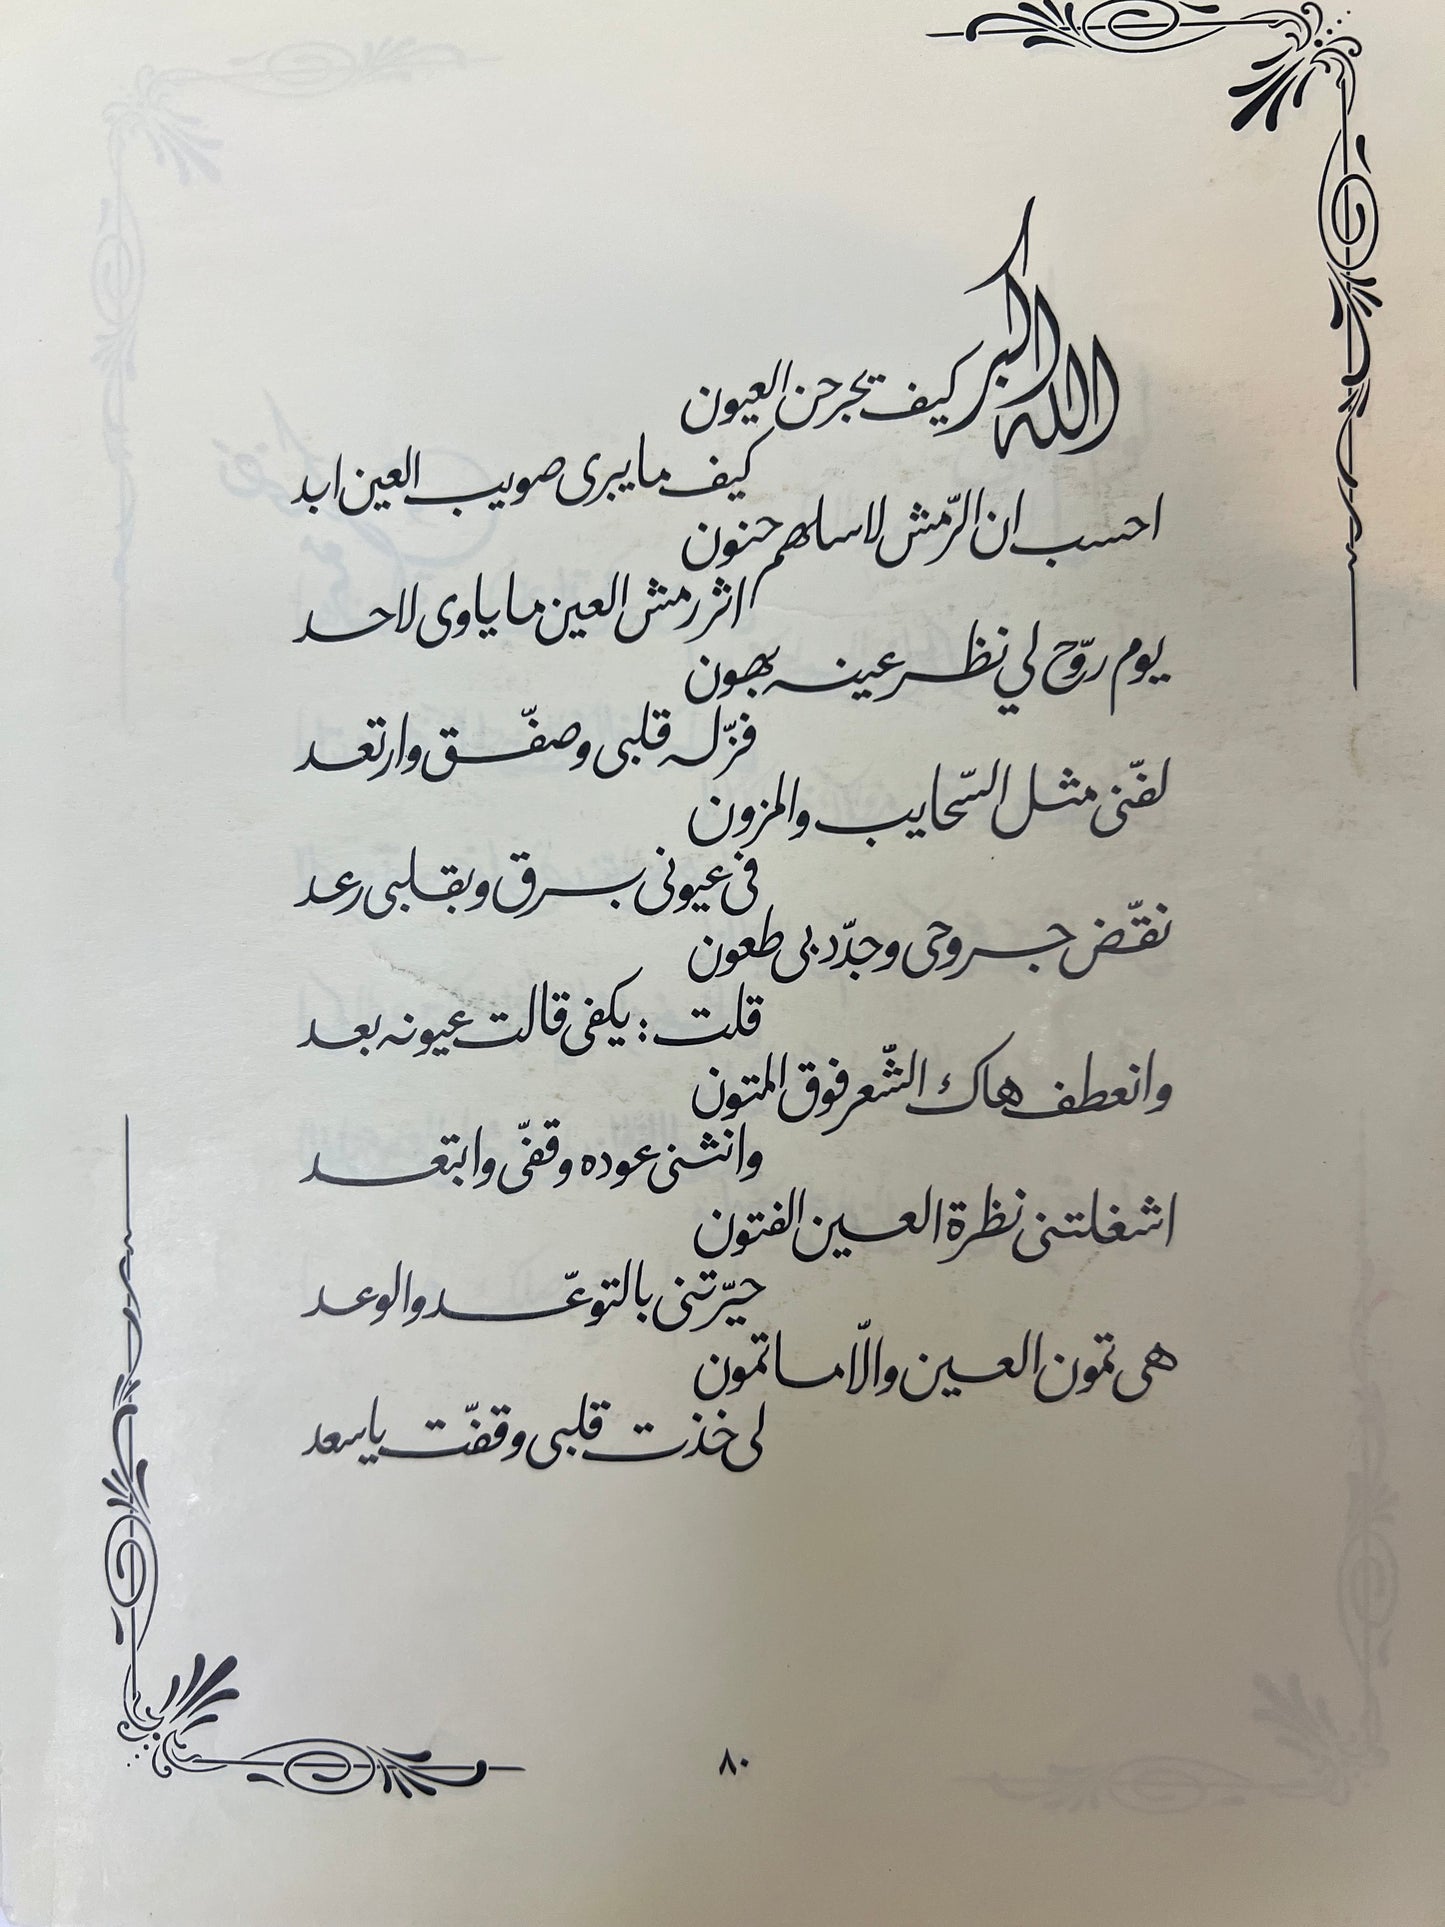 الله اكبر كيف يجرحن العيون
كيف ما يبرى صويب العين ابد
احسب ان الرّمش لاسلهم حنون
اثر رمش العين ما ياوى لاحد
يوم روّح لي نظر عينه بهون
فزّ له قلبى وصفّق وارتعد
لفّنى مثل السّحايب والمزون
فى عيونى برق وبقلبى رعد
نقّض جروحى وجدّد بى طعون
قلت : يكفى قالت عيونه بعد
وانعطف هاك الشّعر فوق المتون
وانثنى عوده وقفّى وابتعد
اشغلتنى نظرة العين الفتون
حيّرتنى بالتوعّد والوعد
هى تمون العين والّا ما تمون
لى خذت قلبى وقفّت ياسعد
٨٠